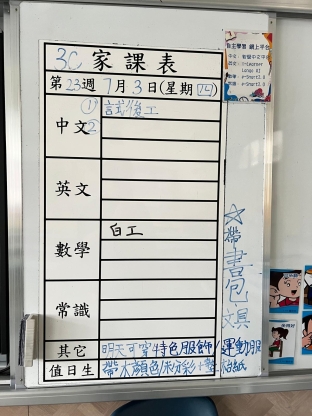 3C 家課表
第23週 7月3日(星期四)
中文 ① 試後工
②
英文
數學 白工
常識
其它 明天可穿特色服飾/運動服
值日生 帶水顏色/木顏彩+
☆帶書包
文具
自主學習 網上平台